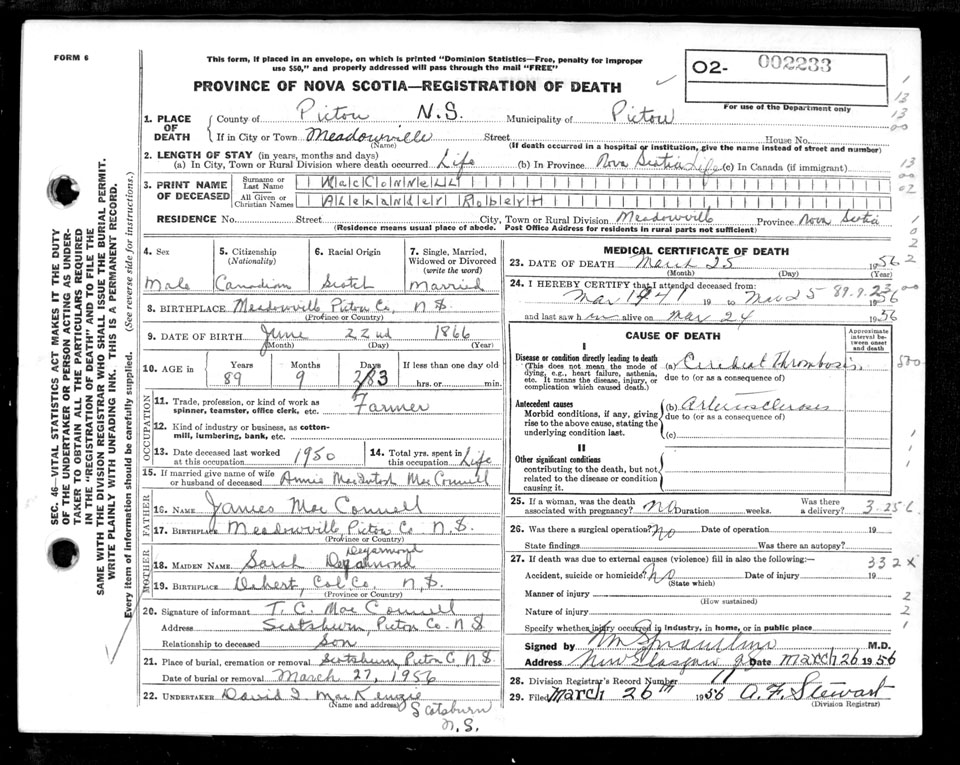 FORM 6
This form, if placed in an envelope, on which is printed "Dominion Statistics—Free, penalty for improper
use $50," and properly addressed will pass through the mail "FREE"
O2- 002233
For use of the Department only
PROVINCE OF NOVA SCOTIA—REGISTRATION OF DEATH
1. PLACE OF DEATH
County of Pictou N.S. Municipality of Pictou
If in City or Town Meadowville Street House No.
(Name) (If death occurred in a hospital or institution, give the name instead of street and number)
2. LENGTH OF STAY (in years, months and days)
(a) In City, Town or Rural Division where death occurred Life (b) In Province Nova Scotia Life (c) In Canada (if immigrant)
3. PRINT NAME OF DECEASED
Surname or Last Name MacConnell
All Given or Christian Names Alexander Robert
RESIDENCE No. Street City, Town or Rural Division Meadowville Province Nova Scotia
(Residence means usual place of abode. Post Office Address for residents in rural parts not sufficient)
4. Sex
Male
5. Citizenship (Nationality)
Canadian
6. Racial Origin
Scotch
7. Single, Married, Widowed or Divorced (write the word)
Married
8. BIRTHPLACE Meadowville Pictou Co. N S
(Province or Country)
9. DATE OF BIRTH June 22nd 1866
(Month) (Day) (Year)
10. AGE in Years Months Days If less than one day old
89 9 3 hrs. or min.
OCCUPATION
11. Trade, profession, or kind of work as
spinner, teamster, office clerk, etc. Farmer
12. Kind of industry or business, as cotton-
mill, lumbering, bank, etc.
13. Date deceased last worked at this occupation 1950
14. Total yrs. spent in this occupation Life
15. If married give name of wife
or husband of deceased Annie MacIntosh MacConnell
FATHER
16. NAME James MacConnell
17. BIRTHPLACE Meadowville Pictou Co N.S.
(Province or Country)
MOTHER
Dejarmond
18. MAIDEN NAME Sarah
19. BIRTHPLACE Debert, Col Co. N.S.
(Province or Country)
20. Signature of informant T. C. MacConnell
Address Scotsburn, Pictou Co. N S
Relationship to deceased Son
21. Place of burial, cremation or removal Scotsburn, Pictou C. N.S.
Date of burial or removal March 27, 1956
22. UNDERTAKER David I. MacKenzie
(Name and address) Scotsburn
N.S.
MEDICAL CERTIFICATE OF DEATH
23. DATE OF DEATH March 25 1956
(Month) (Day) (Year)
24. I HEREBY CERTIFY that I attended deceased from:
Mar 1941 19 to Mar 25 1956
and last saw him alive on Mar 24 1956
CAUSE OF DEATH
Approximate interval between onset and death
I
Disease or condition directly leading to death
(This does not mean the mode of
dying, e.g., heart failure, asthenia,
etc. It means the disease, injury, or
complication which caused death.)
(a) Cerebral Thrombosis
due to (or as a consequence of)
Antecedent causes
Morbid conditions, if any, giving
rise to the above cause, stating the
underlying condition last.
(b) Arteriosclerosis
due to (or as a consequence of)
(c)
II
Other significant conditions
contributing to the death, but not
related to the disease or condition
causing it.
25. If a woman, was the death Was there
associated with pregnancy? No Duration weeks. a delivery?
26. Was there a surgical operation? No Date of operation 19
State findings Was there an autopsy?
27. If death was due to external causes (violence) fill in also the following:—
Accident, suicide or homicide? No Date of injury 19
(State which)
Manner of injury
(How sustained)
Nature of injury
Specify whether injury occurred in industry, in home, or in public place
Signed by M.D.
Address New Glasgow Date March 26 1956
28. Division Registrar's Record Number 11
29. Filed March 26th 1956 A. F. Stewart
(Division Registrar)
332 X
SEC. 46—VITAL STATISTICS ACT MAKES IT THE DUTY
OF THE UNDERTAKER OR PERSON ACTING AS UNDER-
TAKER TO OBTAIN ALL THE PARTICULARS REQUIRED
IN THE "REGISTRATION OF DEATH" AND TO FILE THE
SAME WITH THE DIVISION REGISTRAR WHO SHALL ISSUE THE BURIAL PERMIT.
WRITE PLAINLY WITH UNFADING INK. THIS IS A PERMANENT RECORD.
Every item of information should be carefully supplied. (See reverse side for instructions.)